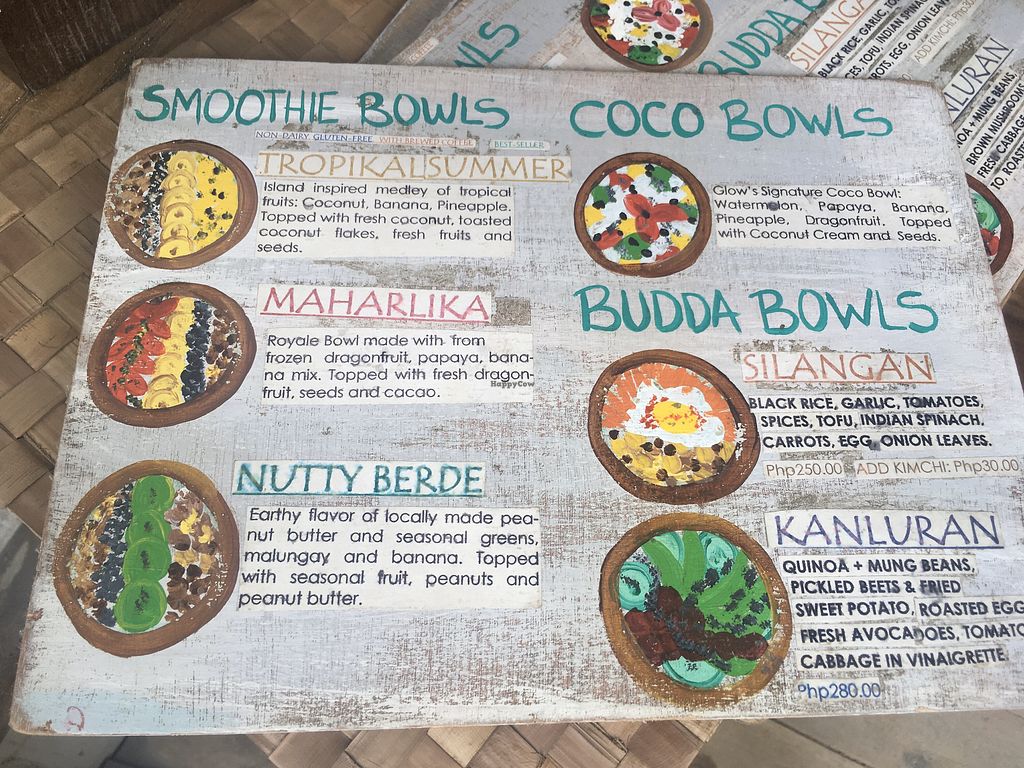 SMOOTHIE BOWLS
NON-DAIRY GLUTEN-FREE WITH BREWED COFFEE BEST-SELLER
TROPIKAL SUMMER
Island inspired medley of tropical
fruits: Coconut, Banana, Pineapple.
Topped with fresh coconut, toasted
coconut flakes, fresh fruits and
seeds.
MAHARLIKA
Royale Bowl made with from
frozen dragonfruit, papaya, bana-
na mix. Topped with fresh dragon-
fruit, seeds and cacao.
HappyCow
NUTTY BERDE
Earthy flavor of locally made pea-
nut butter and seasonal greens,
malungay, and banana. Topped
with seasonal fruit, peanuts and
peanut butter.
COCO BOWLS
Glow's Signature Coco Bowl:
Watermelon, Papaya, Banana,
Pineapple, Dragonfruit. Topped
with Coconut Cream and Seeds.
BUDDA BOWLS
SILANGAN
BLACK RICE, GARLIC, TOMATOES,
SPICES, TOFU, INDIAN SPINACH,
CARROTS, EGG, ONION LEAVES.
Php250.00 ADD KIMCHI: Php30.00
KANLURAN
QUINOA + MUNG BEANS,
PICKLED BEETS & FRIED
SWEET POTATO, ROASTED EGG
FRESH AVOCADOES, TOMATO
CABBAGE IN VINAIGRETTE
Php280.00
WLS
BUDDA B
SILANGA
BLACK RICE, GARLIC, TO
CES, TOFU, INDIAN SPINA
ROTS, EGG, ONION LEAVES
ADD KIMCHI: Php30
NLURAN
NOA + MUNG BEANS,
BROWN MUSHROOMS
FRESH, CABBAGE
TO, ROASTED